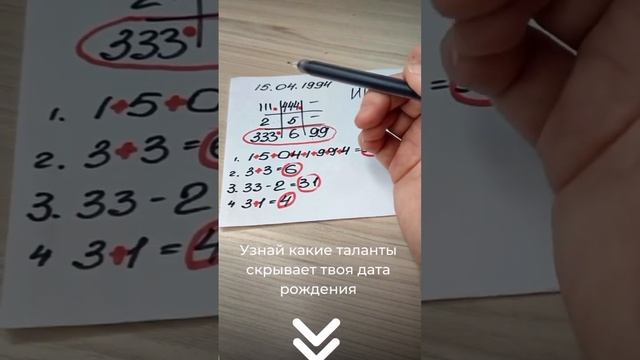 15.04.1994
111 444 –
2 5 –
333 6 99
1. 1+5+04+1+9+9+4=
2. 3+3=6
3. 33-2=31
4 3+1=4
Узнай какие таланты
скрывает твоя дата
рождения